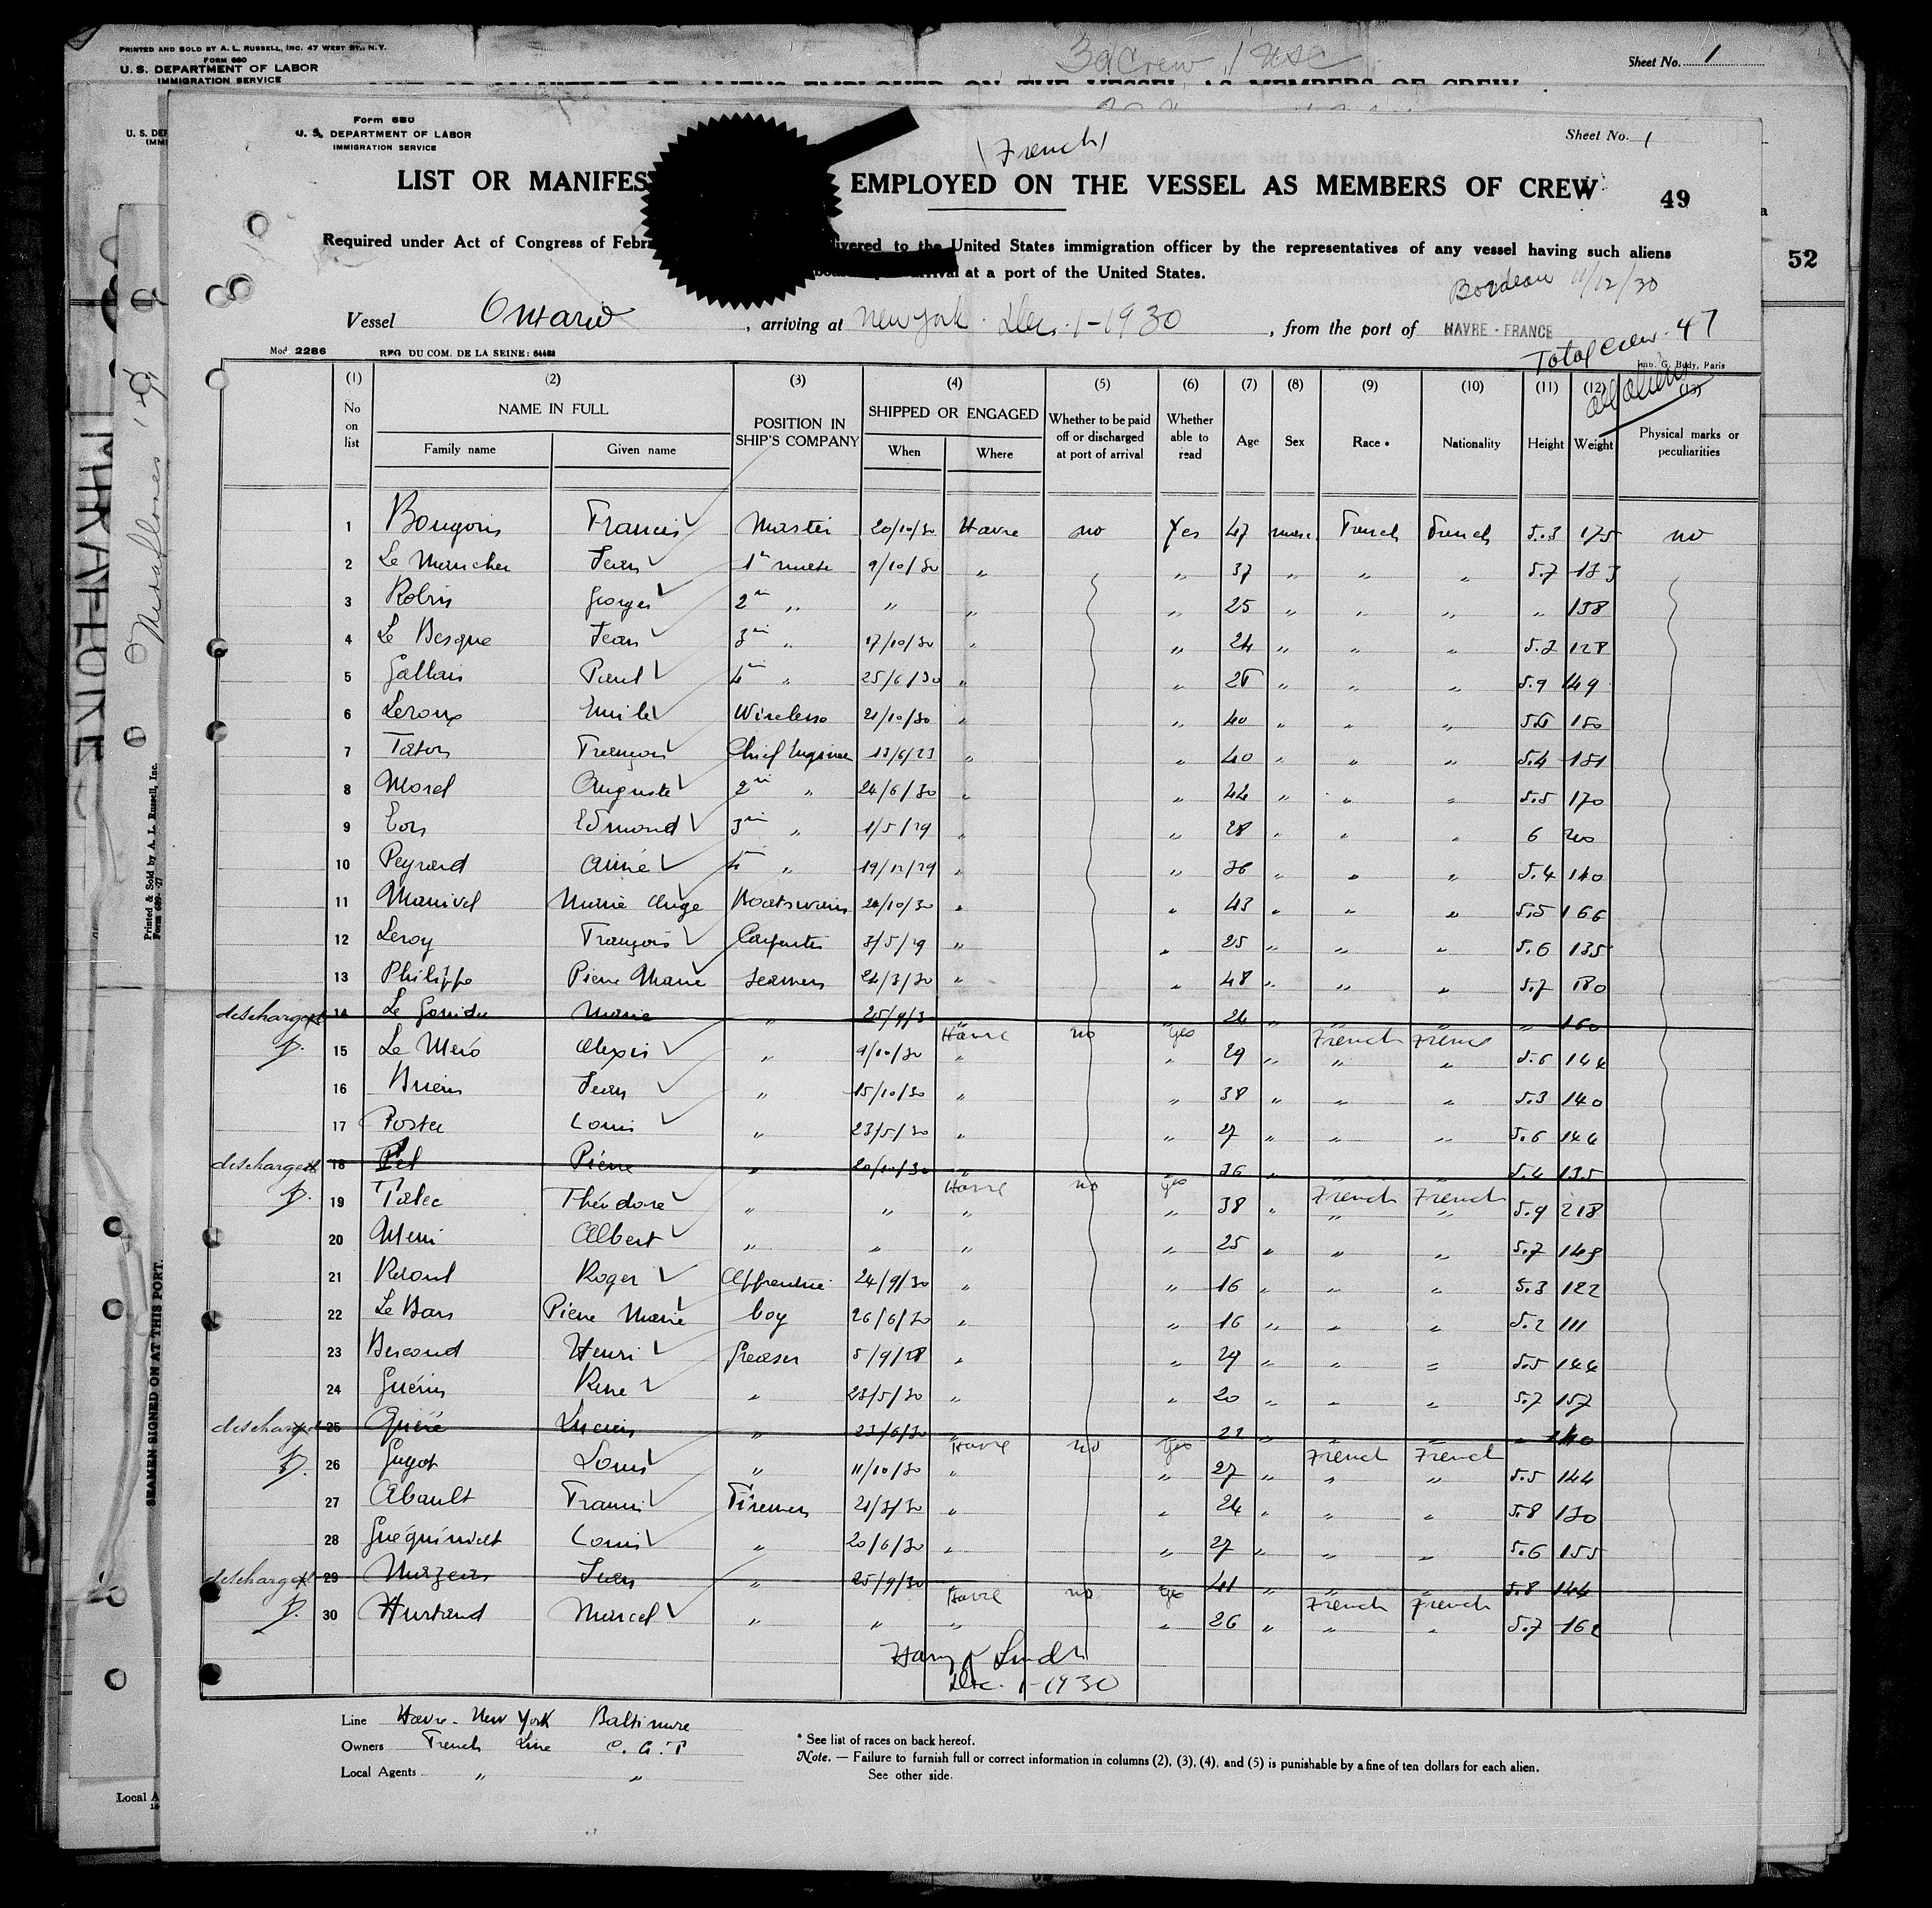 PRINTED AND SOLD BY A. L. RUSSELL, INC. 47 WEST ST., N.Y.
FORM 680
U. S. DEPARTMENT OF LABOR
IMMIGRATION SERVICE
Sheet No. 1
Form 680
U. S. DEPARTMENT OF LABOR
IMMIGRATION SERVICE
(French)
Sheet No. 1
LIST OR MANIFES EMPLOYED ON THE VESSEL AS MEMBERS OF CREW
49
52
Required under Act of Congress of Febr livered to the United States immigration officer by the representatives of any vessel having such aliens
at a port of the United States.
Bordeau 11/12/30
Vessel Ontario, arriving at New York Dec. 1-1930, from the port of HAVRE - FRANCE
Total crew 47
all aliens
Mod 2286 REG. DU COM. DE LA SEINE: 64483 Imp. G. Budy, Paris
(1) (2) (3) (4) (5) (6) (7) (8) (9) (10) (11) (12) (13)
No on list NAME IN FULL Family name Given name POSITION IN SHIP'S COMPANY SHIPPED OR ENGAGED When Where Whether to be paid off or discharged at port of arrival Whether able to read Age Sex Race * Nationality Height Weight Physical marks or peculiarities
1 Bougois Francis Master 20/10/30 Havre no Yes 47 masc. French French 5.3 175 no
2 Le Mancher Jean 1er mate 9/10/30 " " 37 " " " 5.7 133
3 Robin Georges 2me " " " " 25 " " " " 138
4 Le Besque Jean 3me " 17/10/30 " " 24 " " " 5.2 128
5 Gallais Paul 4me " 25/6/30 " " 25 " " " 5.9 149
6 Leroux Emile Wireless 21/10/30 " " 40 " " " 150
7 François Chief Engineer 13/6/23 " " 40 " " " 5.4 181
8 Morel Auguste 2me " 24/6/30 " " 44 " " " 5.5 170
9 Edmond 3me " 1/5/29 " " 28 " " " 6 200
10 Peyrard Aimé 4 " 19/12/29 " " 36 " " " 5.4 140
11 Manivel Marie Ange Boatswain 20/10/30 " " 43 " " " 5.5 166
12 Leroy François Carpenter 3/5/29 " " 25 " " " 5.6 135
13 Philippe Pierre Marie Seamen 24/3/30 " " 48 " " " 5.7 180
discharged 14 Le Gouidu Marie " 25/9/3 Havre no Yes 24 " French French " 160
15 Le Mero Alexis " 9/10/30 " " 29 " " " 5.6 144
16 Brien Jean " 15/10/30 " " 38 " " " 5.3 140
17 Postec Louis " 23/5/30 " " 27 " " " 5.6 144
discharged 18 Pel Pierre " 20/10/30 Havre no yes 36 " French French 5.4 135
19 Talec Théodore " " " " 38 " " " 5.9 218
20 Albert " " " " 25 " " " 5.7 149
21 Raoul Roger Apprentice 24/9/30 " " 16 " " " 5.3 122
22 Le Bars Pierre Marie boy 26/6/30 " " 16 " " " 5.2 111
23 Bescond Henri Greaser 5/9/28 " " 29 " " " 5.5 144
24 Guérin Rene " 23/5/30 " " 20 " " " 5.7 157
discharged 25 Queré Lucien " 23/6/30 Havre no Yes 22 " French French " 140
26 Guyot Louis " 11/10/30 " " 27 " " " 5.5 144
27 Abault Francis Firemen 21/3/30 " " 24 " " " 5.8 130
28 Louis " 20/6/30 " " 27 " " " 5.6 155
discharged 29 Jean " 25/9/30 Havre no yes 41 " French French 5.8 144
30 Hurtaud Marcel " " " " 26 " " " 5.7 162
Dec. 1-1930
Line Havre - New York Baltimore
Owners French Line C. G. T
Local Agents " "
* See list of races on back hereof.
Note. — Failure to furnish full or correct information in columns (2), (3), (4), and (5) is punishable by a fine of ten dollars for each alien.
See other side.
Printed & Sold by A. L. Russell, Inc.
SEAMEN SIGNED ON AT THIS PORT.
Local A